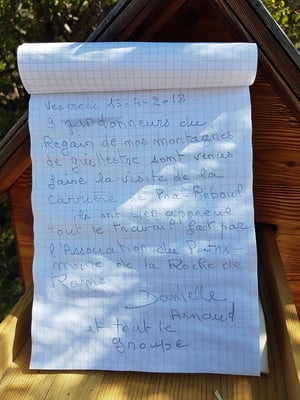 Vendredi 13-4-2018
9 randonneurs du
Regain de nos montagnes
de guillestre sont venus
faire la visite de la
Carrière de Pra-Reboul
ils ont bien apprécié
tout le travail fait par
l'Association du Patri-
moine de la Roche de
Rame
Danielle
Arnaud
et tout le
groupe